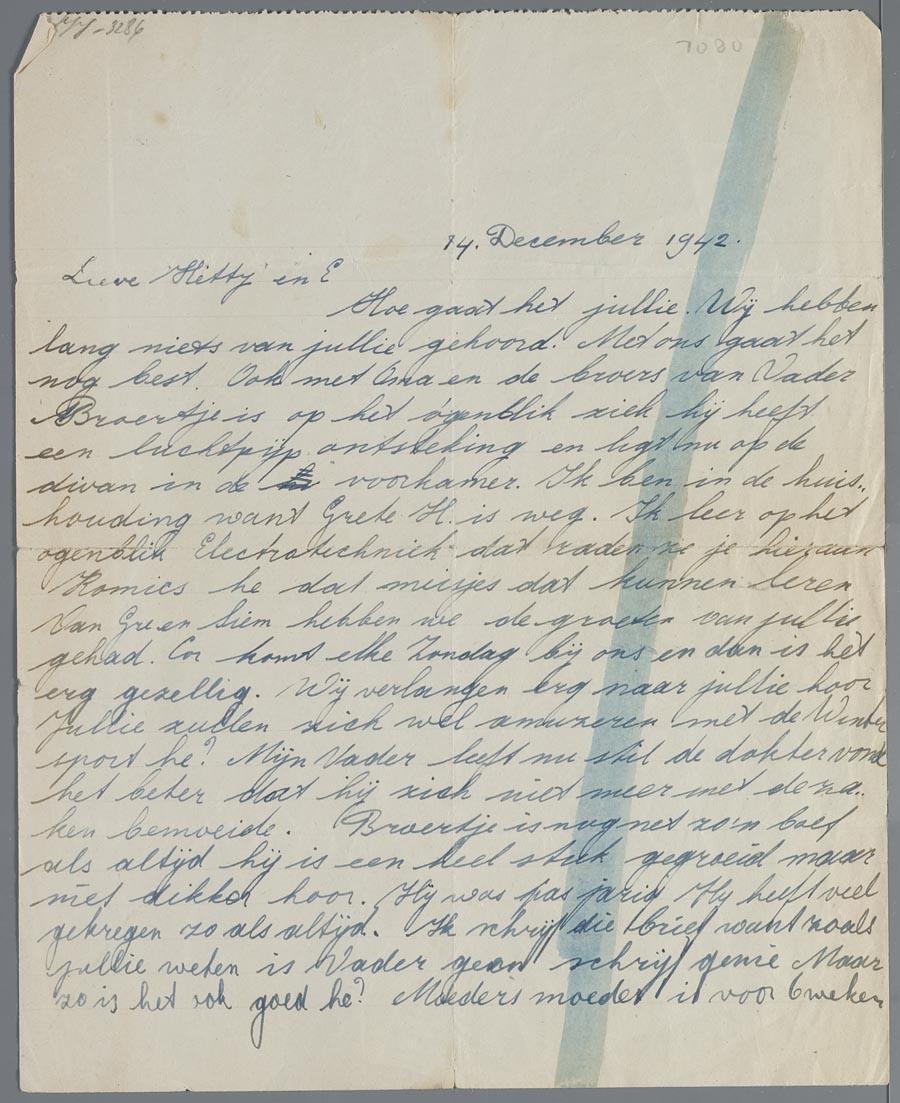 77-3286
7080
14. December 1942.
Lieve Hetty en E
Hoe gaat het jullie. Wij hebben
lang niets van jullie gehoord. Met ons gaat het
nog best. Ook met Oma en de broers van Vader
Broertje is op het ogenblik ziek hij heeft
een luchtpijp ontsteking en ligt nu op de
divan in de voorkamer. Ik ben in de huis..
houding want Grete H. is weg. Ik leer op het
ogenblik Electrotechniek dat raden ze je hier aan
Komics he dat meisjes dat kunnen leren
Van Gre en Siem hebben we de groeten van jullie
gehad. Cor komt elke Zondag bij ons en dan is het
erg gezellig. Wij verlangen erg naar jullie hoor
Jullie zullen zich wel amuzeren met de Winter
sport he? Mijn Vader leeft nu stil de dokter vond
het beter dat hij zich niet meer met de za..
ken bemoeide. Broertje is nog net zo'n boef
als altijd hij is een heel stuk gegroeid maar
niet dikker hoor. Hij was pas jarig Hij heeft veel
gekregen zo als altijd. Ik schrijf die brief want zoals
jullie weten is Vader geen schrijf genie Maar
zo is het ook goed he? Moeders moeder is voor 6 weken